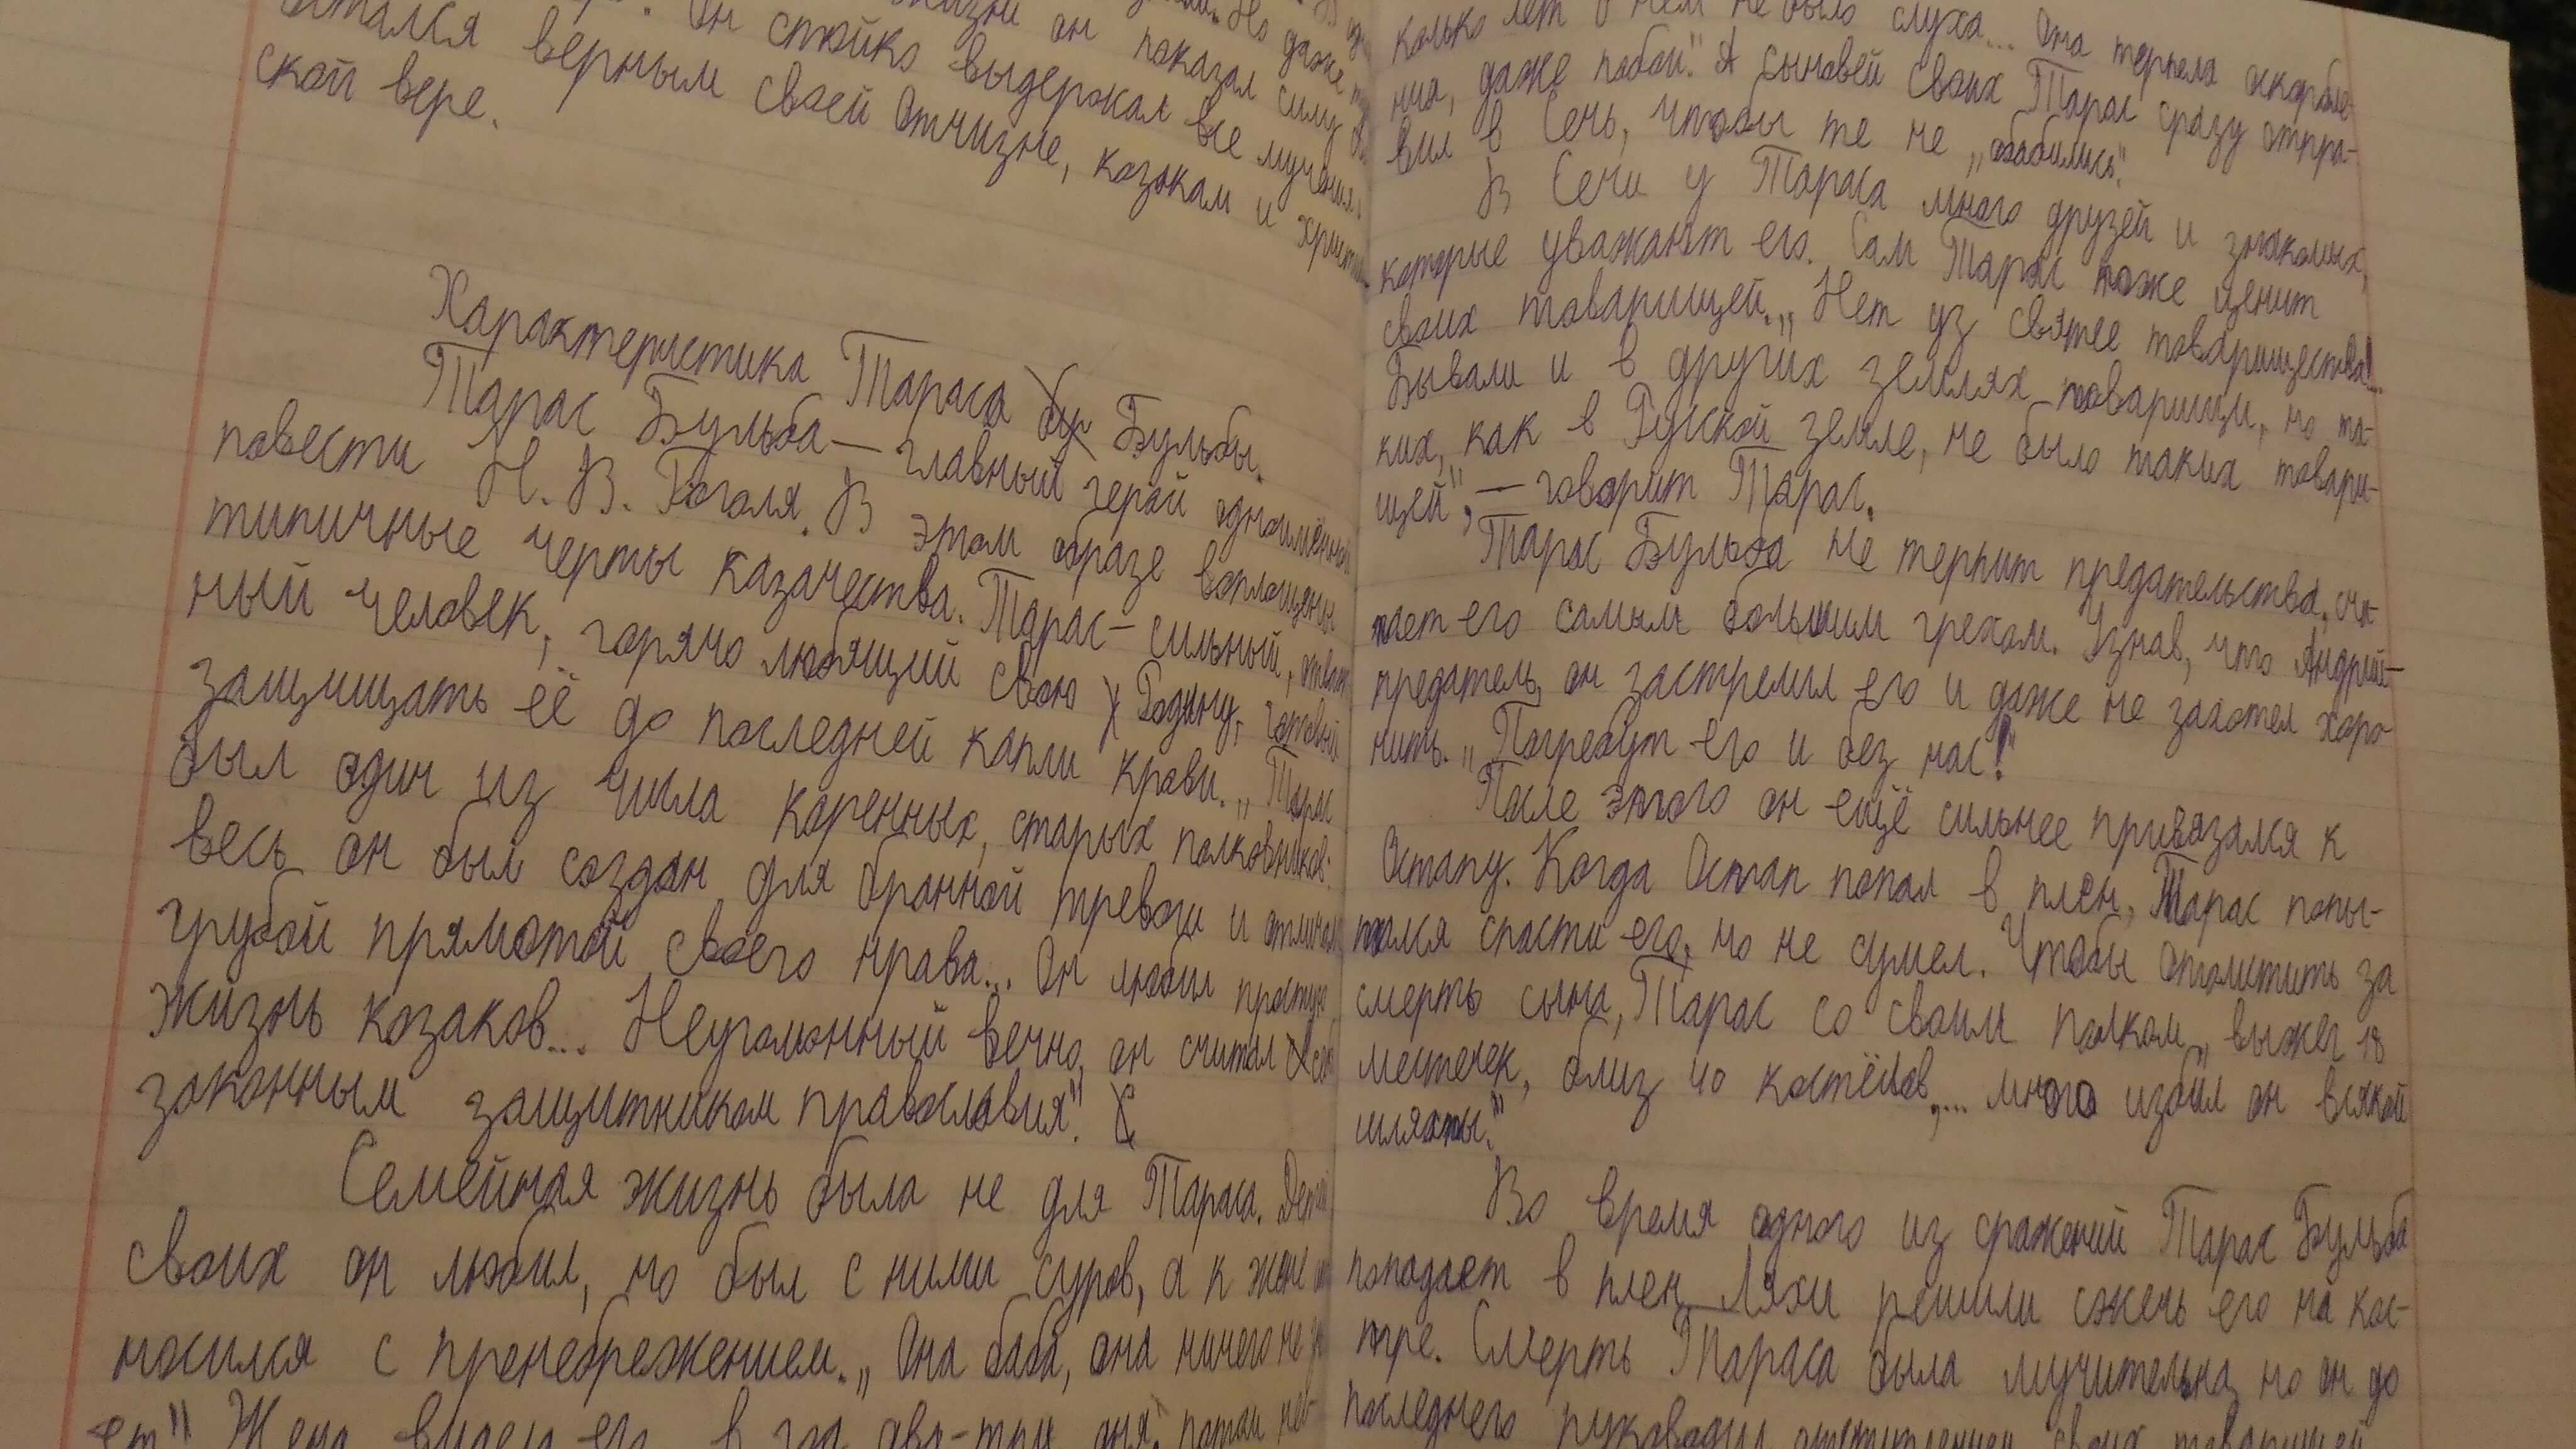 жизни он показал силу
Он стойко выдержал все мучения.
остался верным своей Отчизне, козакам и христиан
ской вере.
Характеристика Тараса Бульбы.
Тарас Бульба — главный герой одноимённой
повести Н. В. Гоголя. В этом образе воплощены
типичные черты казачества. Тарас — сильный, отваж
ный человек, горячо любящий свою Родину, готовый
защищать её до последней капли крови. „Тарас
был один из числа коренных, старых полковников:
весь он был создан для бранной тревоги и отличал
грубой прямотой своего нрава... Он любил простую
жизнь козаков... Неугомонный вечно, он считал себя
законным защитником православия".
Семейная жизнь была не для Тараса. Детей
своих он любил, но был с ними суров, а к жене от
носился с пренебрежением. „Она баба, она ничего не зна
ет" Жена видела его в год два-три дня, потом нес-
колько лет о нём не было слуха... Она терпела оскорбле-
ния, даже побои." А сыновей своих Тарас сразу отпра-
вил в Сечь, чтобы те не „обабились".
В Сечи у Тараса много друзей и знакомых,
которые уважают его. Сам Тарас тоже ценит
своих товарищей. „Нет уз святее товарищества!...
Бывали и в других землях товарищи, но та-
ких, как в Русской земле, не было таких товари-
щей", — говорит Тарас.
Тарас Бульба не терпит предательства, счи-
тает его самым большим грехом. Узнав, что Андрий —
предатель, он застрелил его и даже не захотел хоро
нить. „Погребут его и без нас!"
После этого он ещё сильнее привязался к
Остапу. Когда Остап попал в плен, Тарас попы-
тался спасти его, но не сумел. Чтобы отомстить за
смерть сына, Тарас со своим полком „выжег 18
местечек, близ 40 костёлов,... много избил он всякой
шляхты."
Во время одного из сражений Тарас Бульба
попадает в плен. Ляхи решили сжечь его на кос-
тре. Смерть Тараса была мучительна, но он до
последнего руководил отступлением своих товарищей